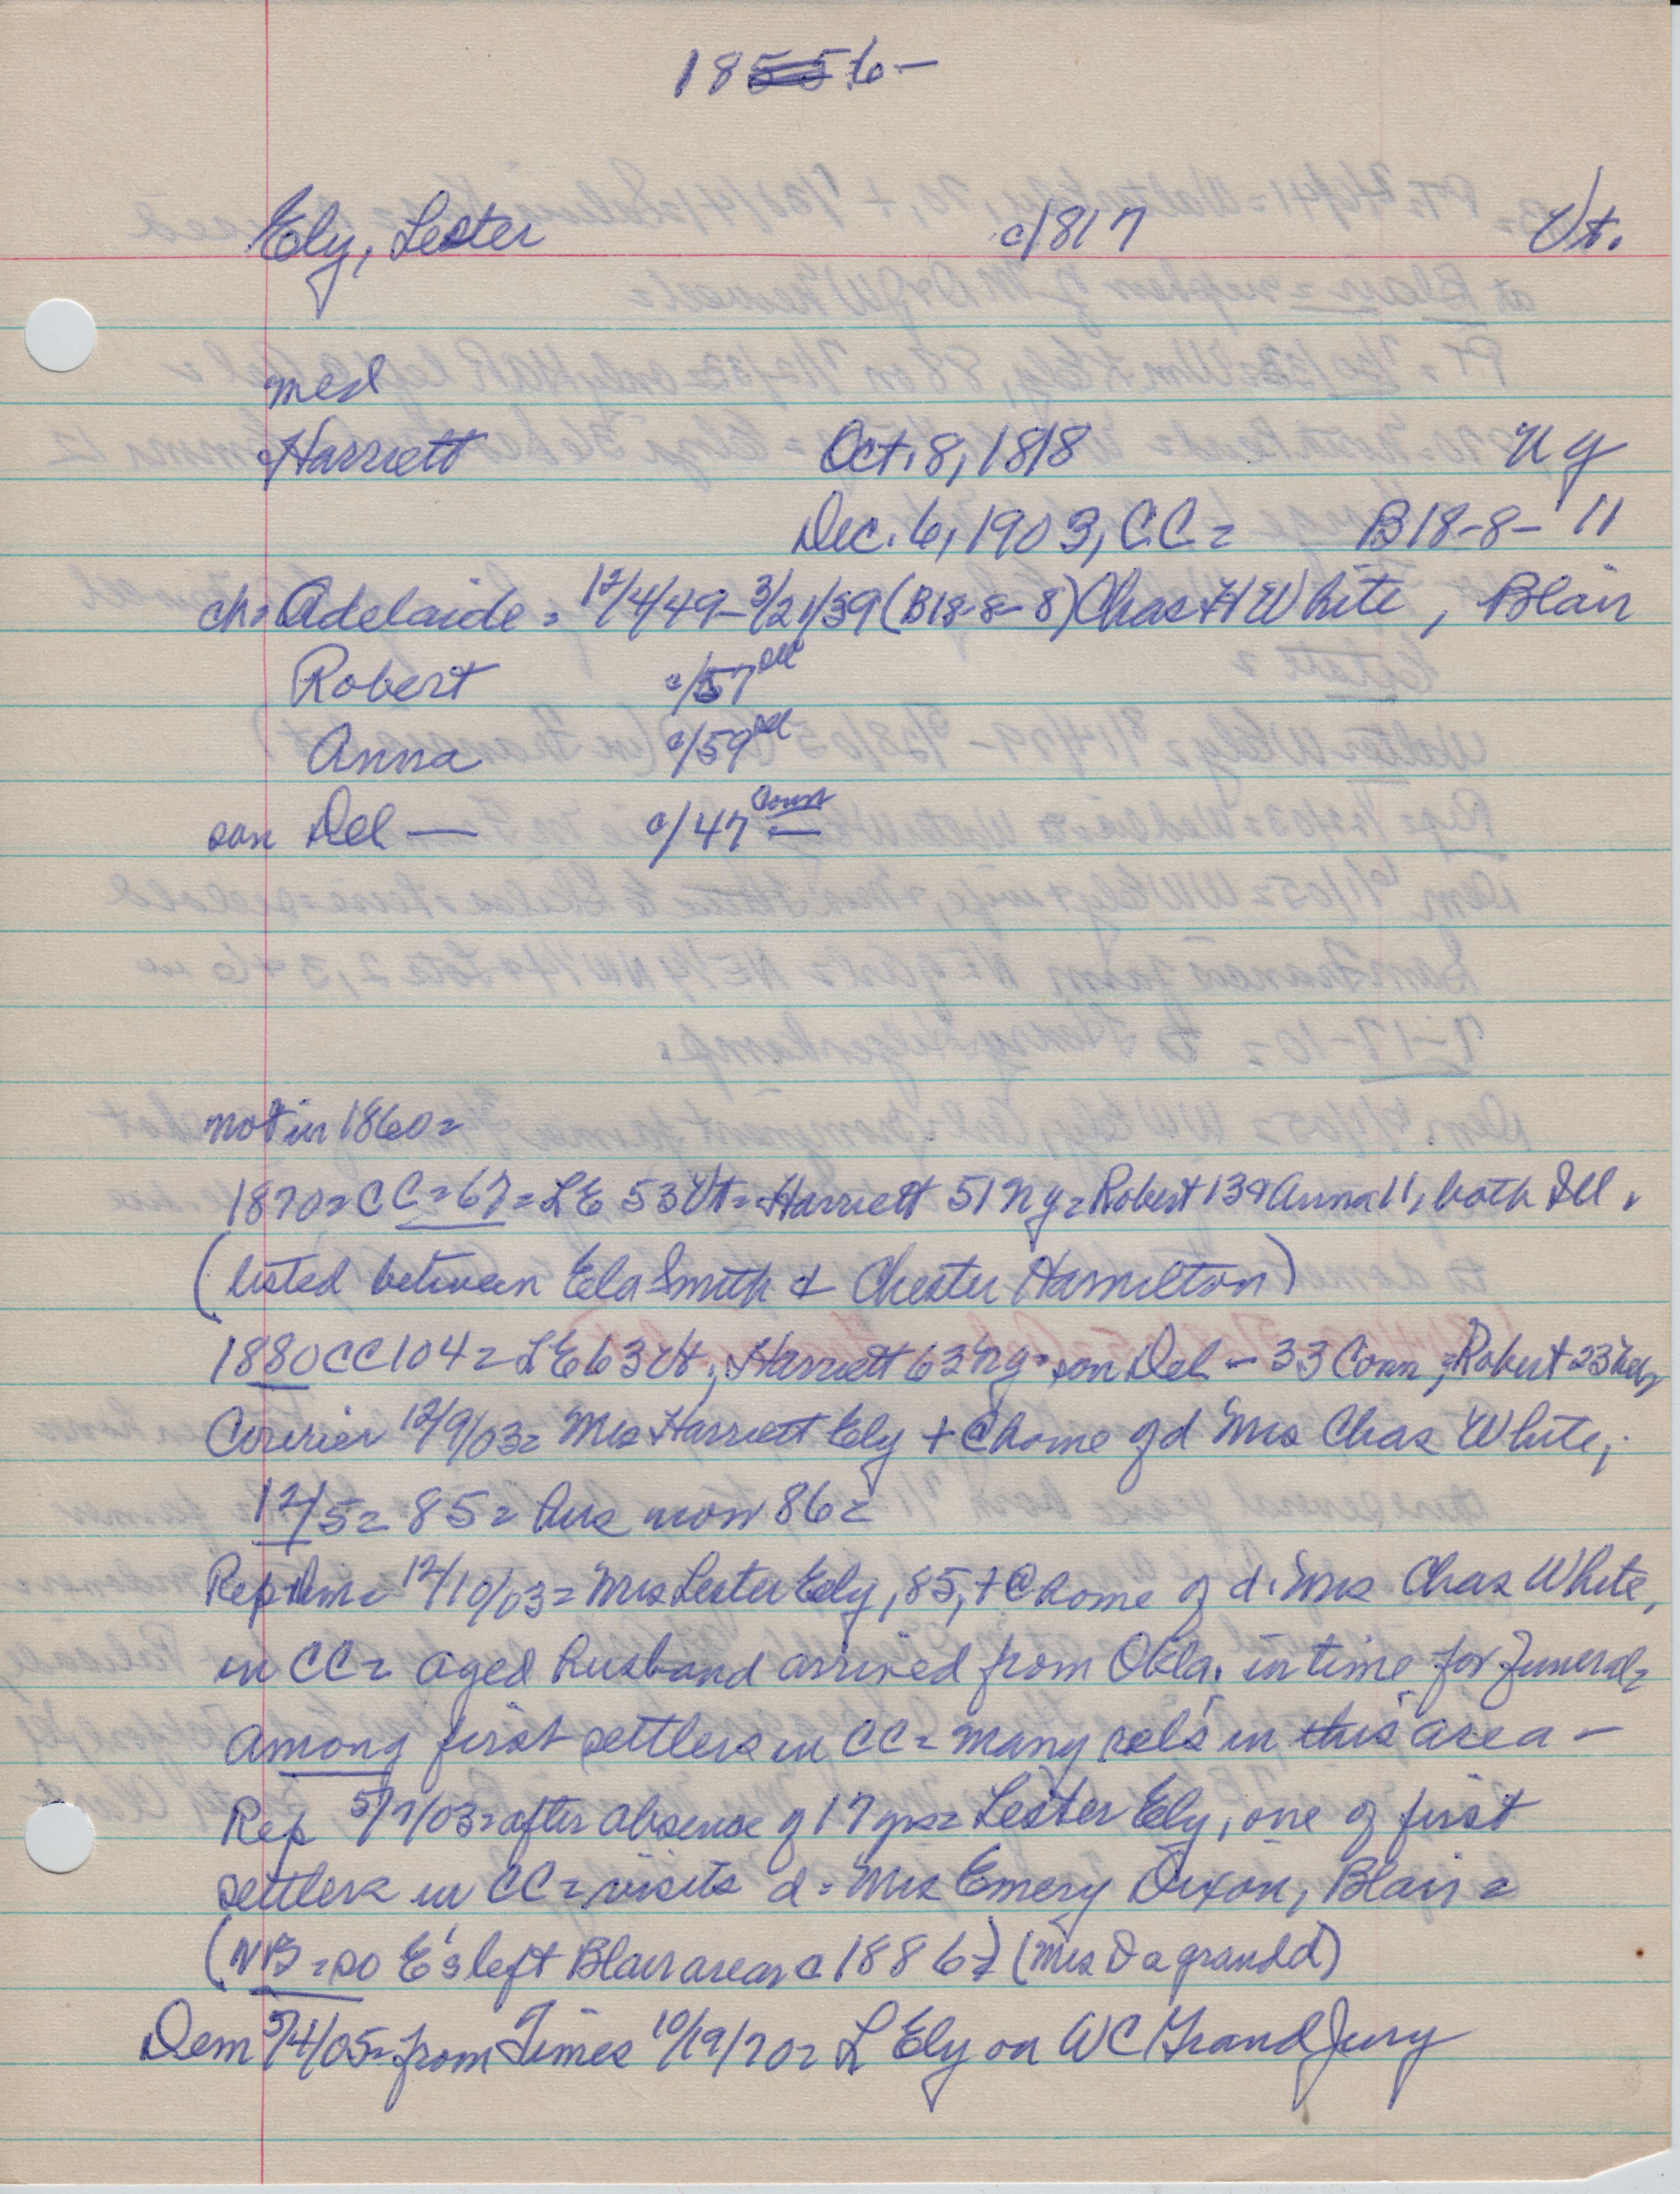 18556-
Ely, Lester c/817 Vt.
med
Harriett Oct. 8, 1818 N Y
Dec. 6, 1903, CC= B18-8-11
ch= Adelaide = 12/4/49-3/21/39 (B18-8-8) Chas H White, Blair
Robert c/57 Ill
Anna c/59 Ill
son Del — c/47 Conn —
not in 1860=
1870=CC=67=LE 53 Vt=Harriett 51 NY=Robert 13+Anna 11, both Ill.
(listed between Ela Smith & Chester Hamilton)
1880 CC 104= LE 63 Vt, Harriett 63 NY= son Del - 33 Conn, =Robert 23
Courier 12/9/03= Mrs Harriett Ely + @ home of d Mrs Chas White,
12/5= 85= hus now 86=
Rep 12/10/03= Mrs Lester Ely, 85, + @ home of d. Mrs Chas White,
in CC= aged husband arrived from Okla. in time for funeral=
among first settlers in CC= many rels in this area-
Rep 5/7/03= after absence of 17 yrs= Lester Ely, one of first
settlers in CC= visits d= Mrs Emery Dixon, Blair=
(NB= so E's left Blair area c 1886=) (Mrs D a grandd)
Dem 5/4/05= from Times 10/19/70= L Ely on WC Grand Jury